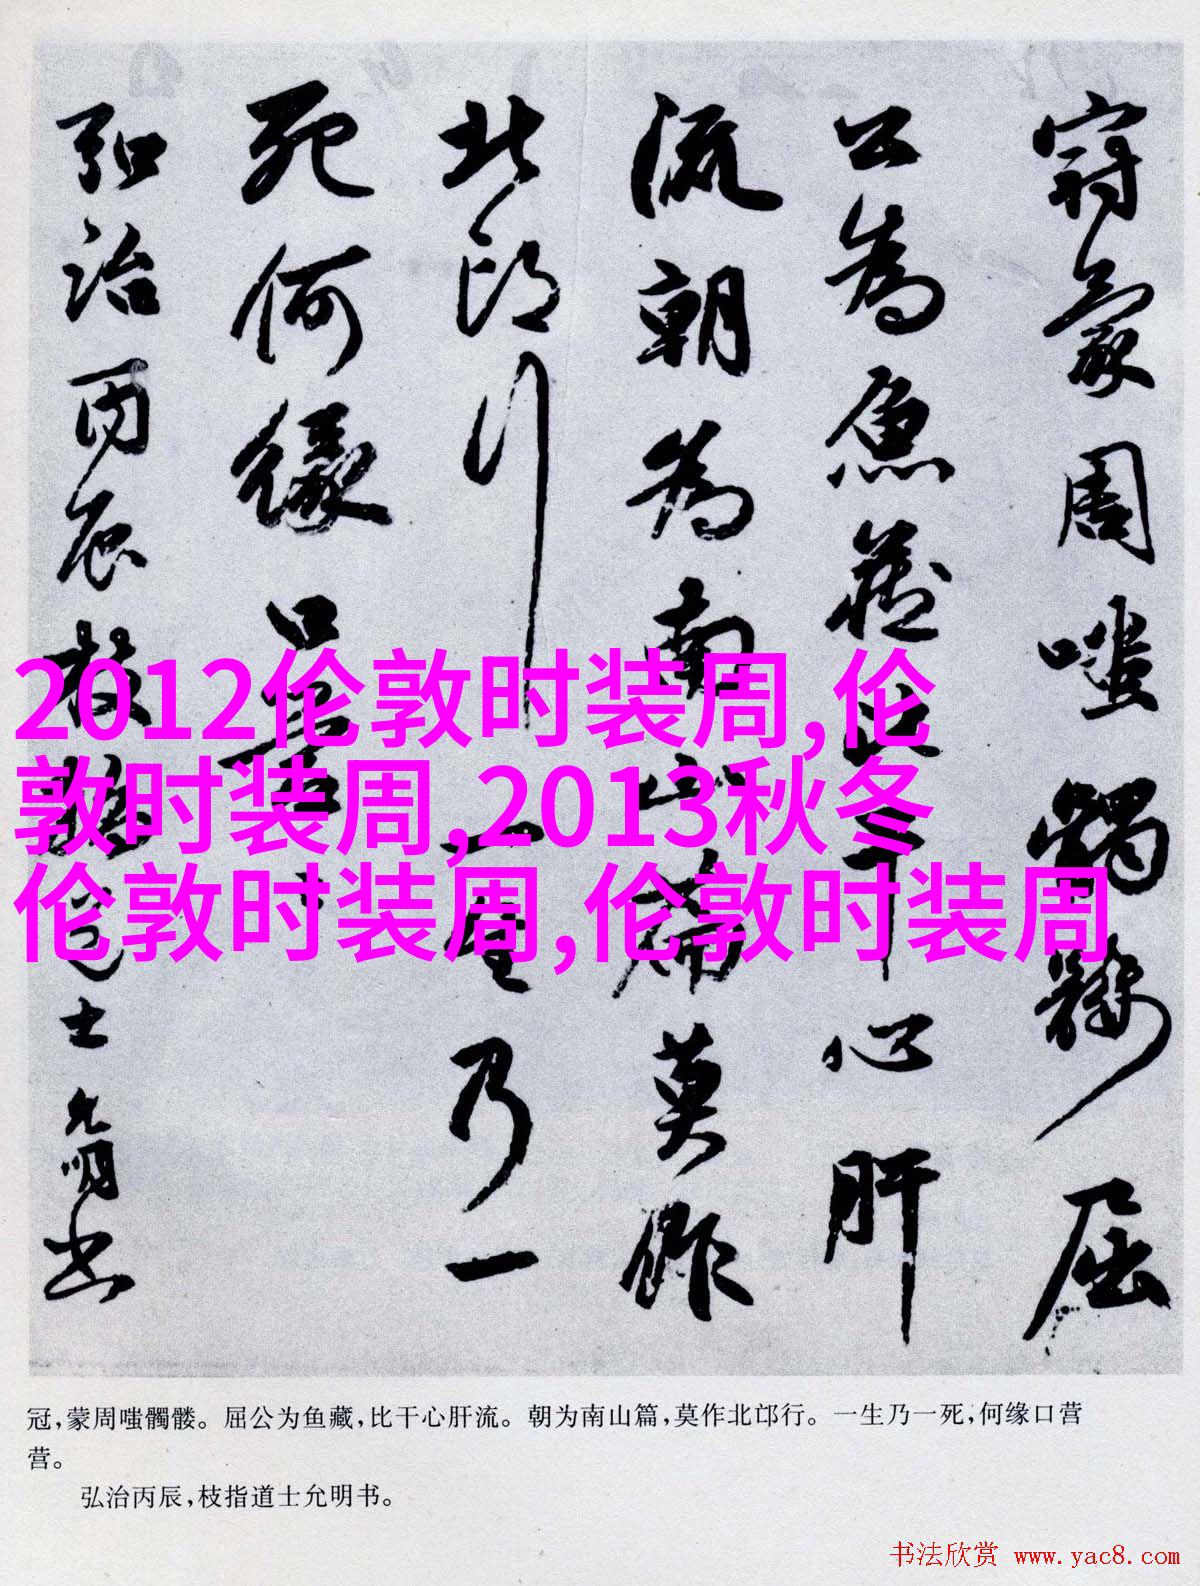 冠蒙周嗤髑髅屈
公为鱼藏比干心肝
流朝为南山篇莫作
北邙行一生乃一
死何缘口营营
弘治丙辰枝指道士允明书
2012伦敦时装周,伦
敦时装周,2013秋冬
伦敦时装周,伦敦时装周
冠,蒙周嗤髑髅。屈公为鱼藏,比干心肝流。朝为南山篇,莫作北邙行。一生乃一死,何缘口营
营。
弘治丙辰,枝指道士允明书。
书法欣赏 www.yac8.com